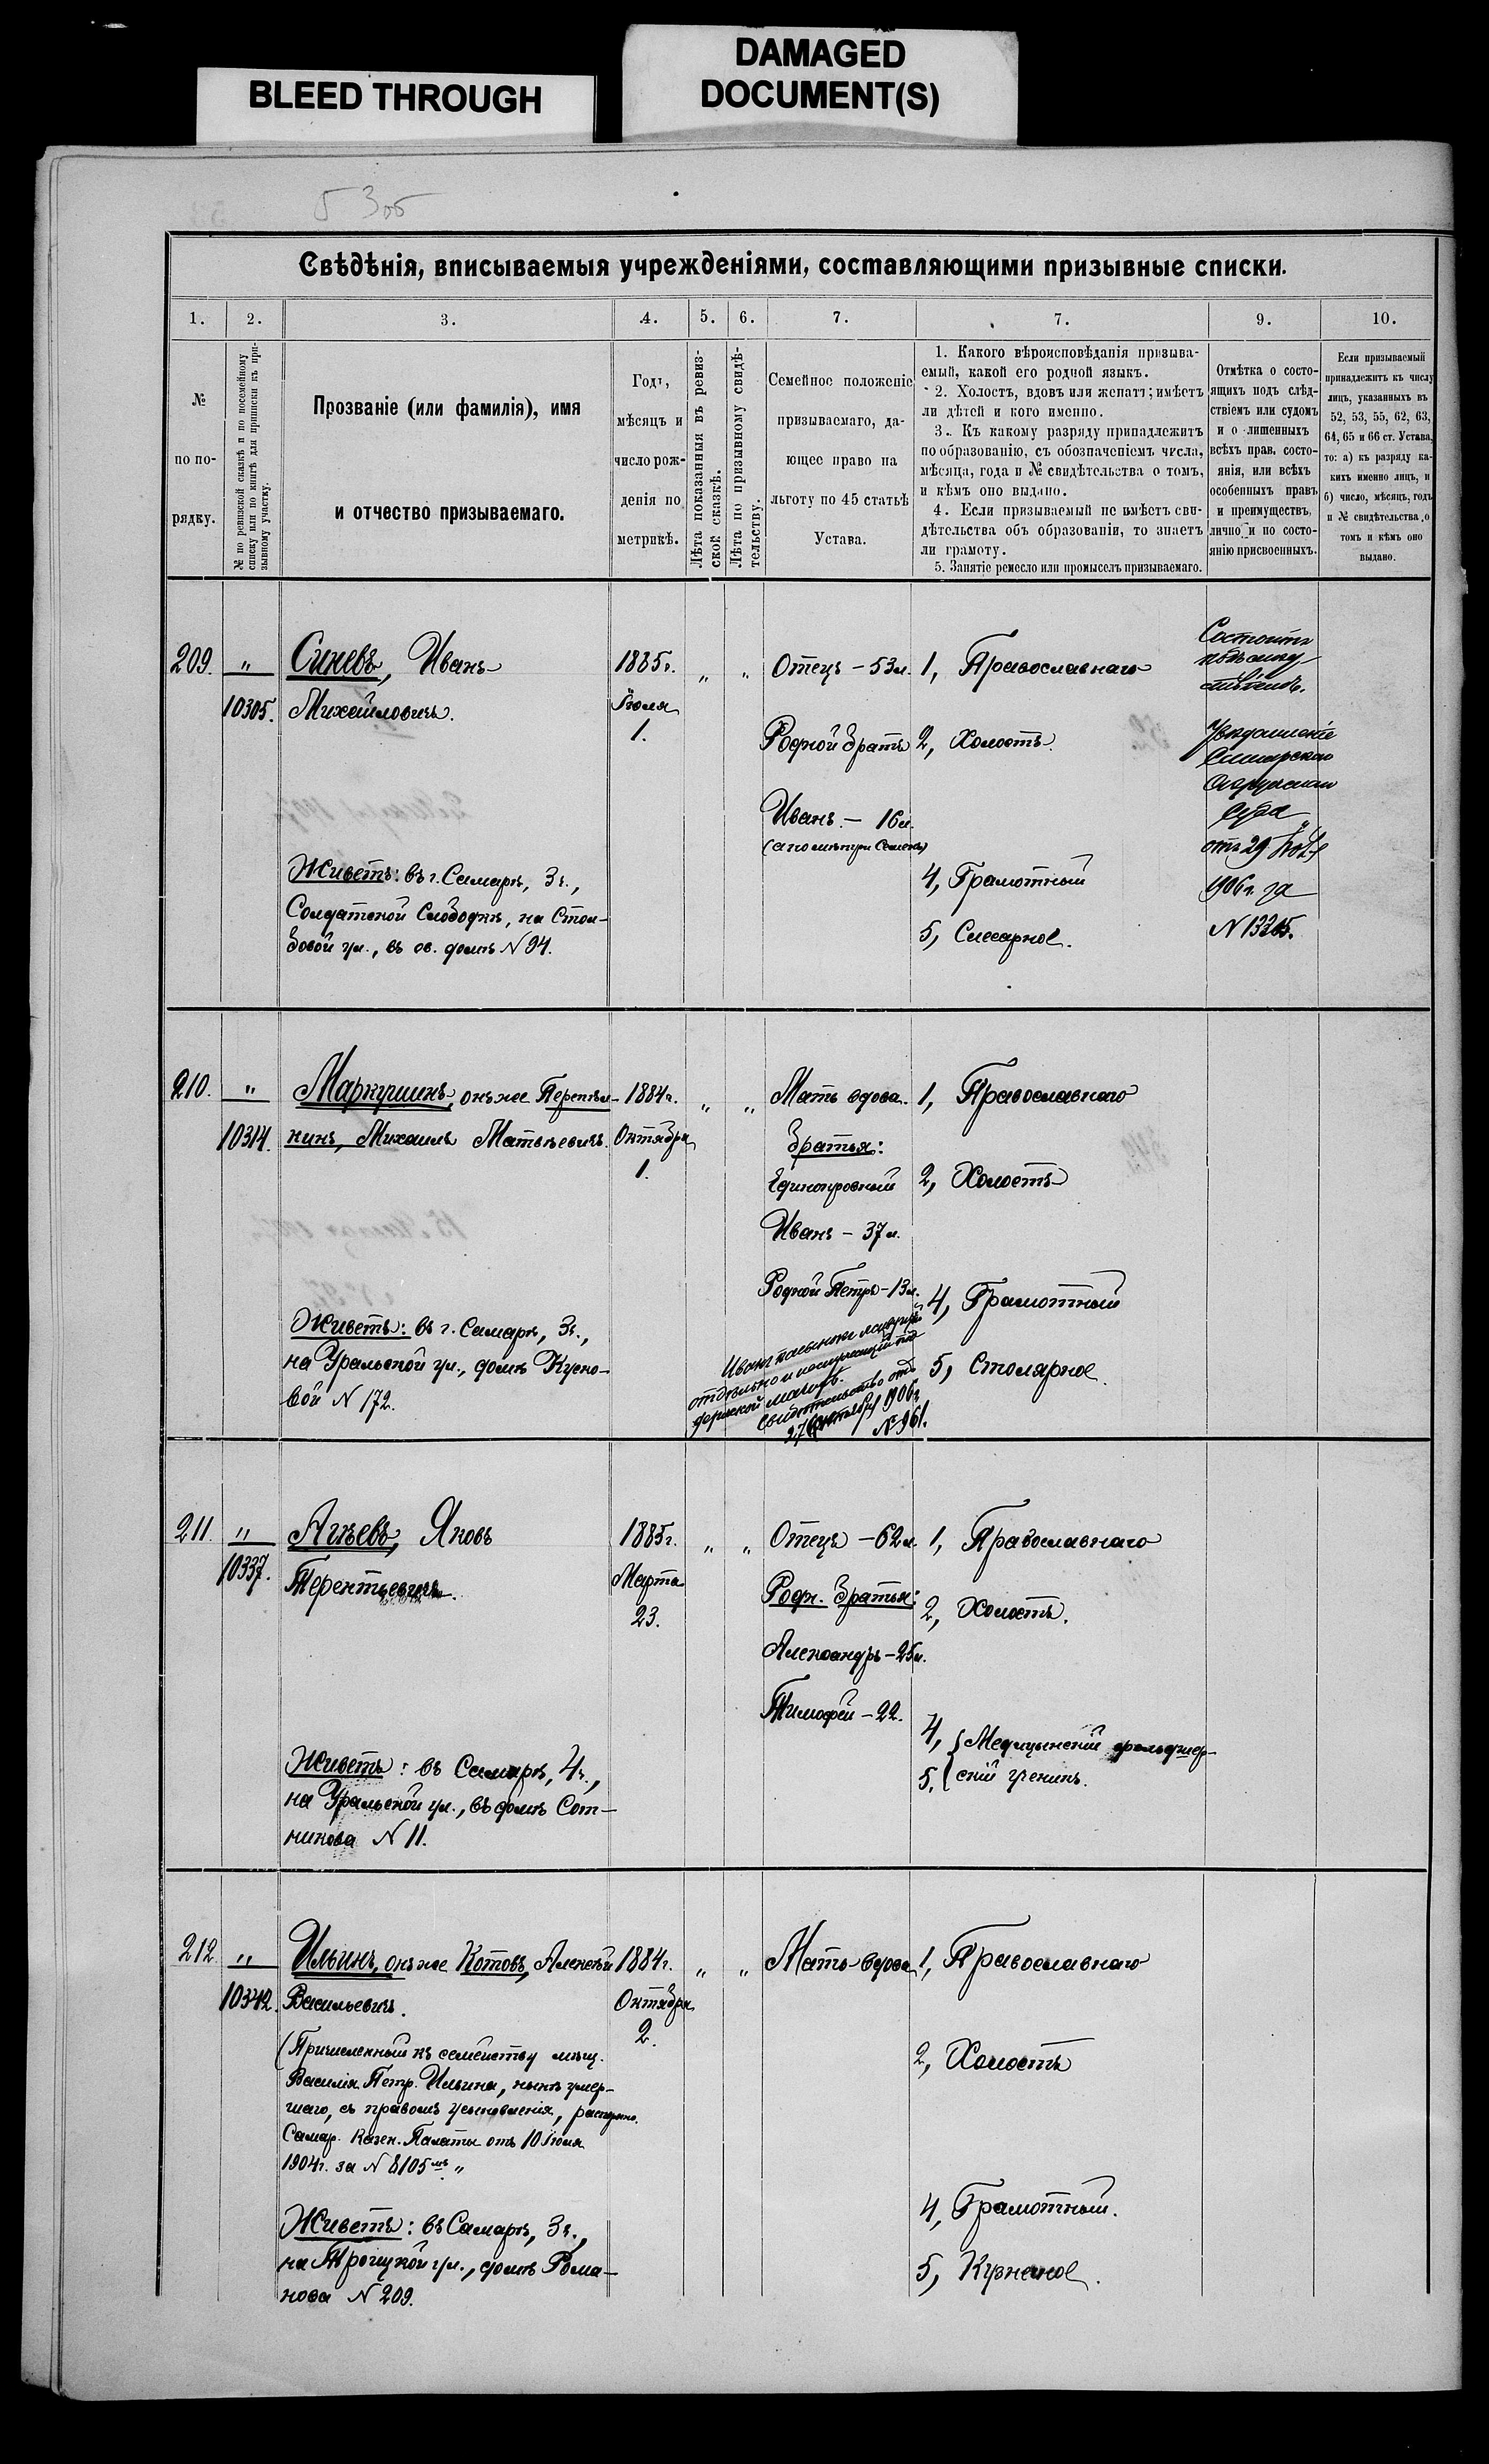 BLEED THROUGH
DAMAGED
DOCUMENT(S)
53об
Свѣдѣнія, вписываемыя учрежденіями, составляющими призывные списки.
1. 2. 3. 4. 5. 6. 7. 7. 9. 10.
№
по по-
рядку.
№ по ревизской сказкѣ и по посемейному
списку или по книгѣ для приписки къ при-
зывному участку.
Прозваніе (или фамилія), имя
и отчество призываемаго.
Годъ,
мѣсяцъ и
число рож-
денія по
метрикѣ.
Лѣта показанныя въ ревиз-
ской сказкѣ.
Лѣта по призывному свидѣ-
тельству.
Семейное положеніе
призываемаго, да-
ющее право на
льготу по 45 статьѣ
Устава.
1. Какого вѣроисповѣданія призыва-
емый, какой его родной языкъ.
2. Холостъ, вдовъ или женатъ; имѣетъ
ли дѣтей и кого именно.
3. Къ какому разряду принадлежитъ
по образованію, съ обозначеніемъ числа,
мѣсяца, года и № свидѣтельства о томъ,
и кѣмъ оно выдано.
4. Если призываемый не имѣетъ сви-
дѣтельства объ образованіи, то знаетъ
ли грамоту.
5. Занятіе ремесло или промыселъ призываемаго.
Отмѣтка о состо-
ящихъ подъ слѣд-
ствіемъ или судомъ
и о лишенныхъ
всѣхъ правъ состо-
янія, или всѣхъ
особенныхъ правъ
и преимуществъ,
лично и по состо-
янію присвоенныхъ.
Если призываемый
принадлежитъ къ числу
лицъ, указанныхъ въ
52, 53, 55, 62, 63,
64, 65 и 66 ст. Устава,
то: а) къ разряду ка-
кихъ именно лицъ, и
б) число, мѣсяцъ, годъ
и № свидѣтельства о
томъ и кѣмъ оно
выдано.
209. „
10305.
Синевъ, Иванъ
Михайловичъ.
Живетъ: въ г. Самарѣ, 3ч.,
Солдатской Слободкѣ, на Стол-
бовой ул., въ св. домѣ N 94.
1885г.
Іюля
1.
„ „
Отецъ – 53л.
Родной братъ
Иванъ – 16л.
(а по метри Семенъ)
1, Православнаго
2, Холостъ.
4, Грамотный
5, Слесарное.
Состоитъ
подъ слѣд-
ствіемъ.
Увѣдомленіе
Самарскаго
Окружнаго
Суда
отъ 29
1906г. за
N 13265.
210. „
10314.
Маркушинъ, онъ же Перепел-
кинъ, Михаилъ Матвѣевичъ.
Живетъ: въ г. Самарѣ, 3ч.,
на Уральской ул., домѣ Кусно-
вой N 172.
1884г.
Октября
1.
„ „
Мать вдова.
Братья:
Единокровный
Иванъ – 37л.
Родной Петръ – 13л.
отдѣльно
Свидѣтельство отъ
27 Сентября 1906г.
№ 961.
1, Православнаго
2, Холостъ
4, Грамотный
5, Столярное.
211. „
10337.
Агѣевъ, Яковъ
Терентьевичъ.
Живетъ: въ Самарѣ, 4ч.,
на Уральской ул., въ домѣ Сот-
никова N 11.
1885г.
Марта
23.
„ „
Отецъ – 62л.
Родн. братья:
Александръ – 25л.
Тимофей – 22.
1, Православнаго
2, Холостъ.
4, Медицинскій фельдшер-
5. скій ученикъ.
212 „
10342.
Ильинъ, онъ же Котовъ, Алексѣй
Васильевичъ.
(Причисленный къ семейству мѣщ.
Василія Петр. Ильина, нынѣ умер-
шаго, съ правомъ усыновленія, распоряж.
Самар. Казен. Палаты отъ 10 Іюля
1904г. за N 8105мъ „
Живетъ: въ Самарѣ, 3ч.,
на Троицкой ул., домѣ Рома-
нова N 209.
1884г.
Октября
2.
„ „
Мать – вдова
1, Православнаго
2, Холостъ
4, Грамотный.
5, Кузнечное.